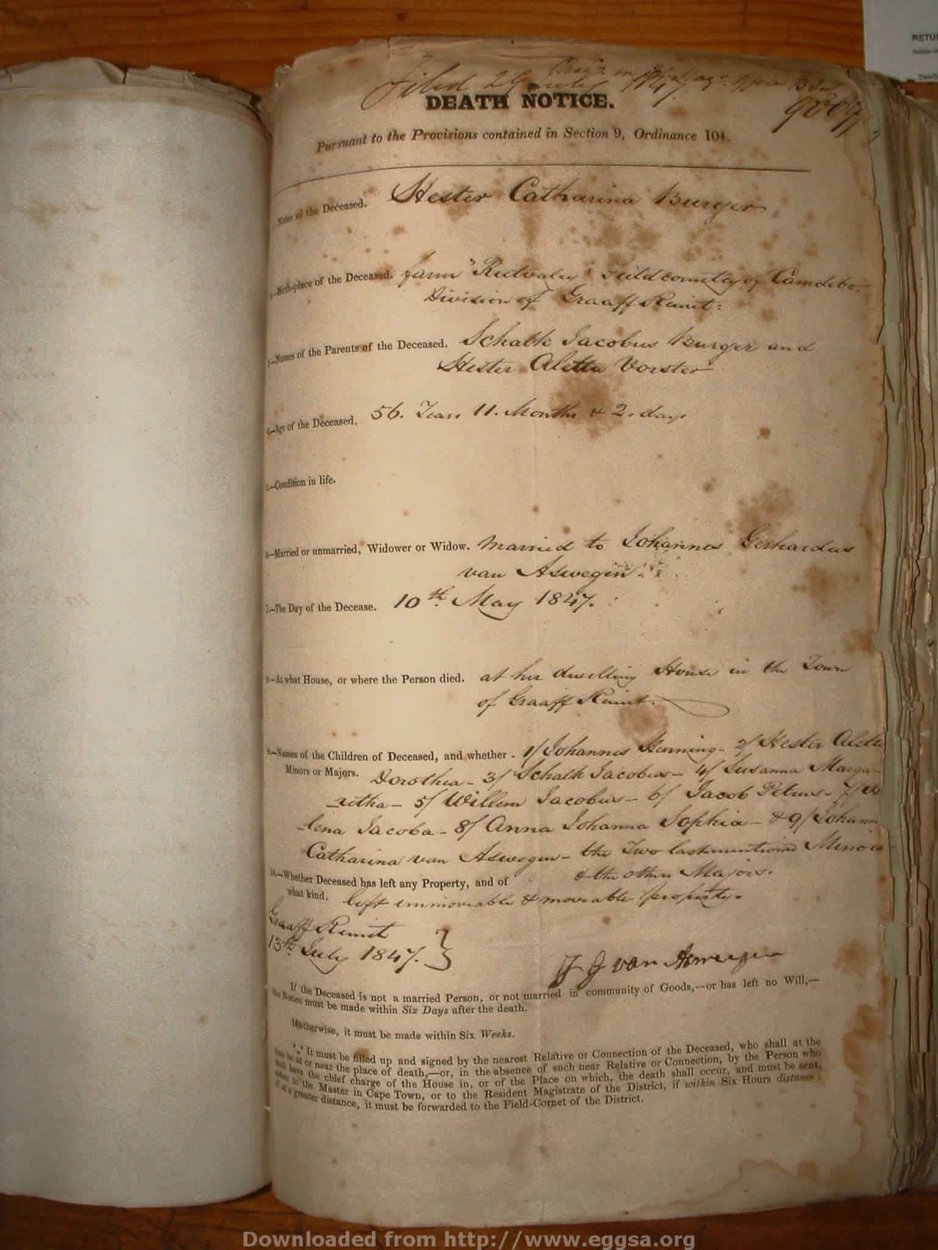 RETU
Filed 29 July 1847.
9009
DEATH NOTICE.
Pursuant to the Provisions contained in Section 9, Ordinance 104.
Name of the Deceased. Hester Catharina Burger
Birth-place of the Deceased. farm " Fieldcornetcy of Camdebo,
Division of Graaff Reinet.
3.—Names of the Parents of the Deceased. Schalk Jacobus Burger and
Hester Aletta Vorster
Age of the Deceased. 56. Years 11. Months & 2. days
Condition in life.
Married or unmarried, Widower or Widow. Married to Johannes Gerhardus
van Aswegen.
7.—The Day of the Decease. 10th May 1847.
8.—At what House, or where the Person died. at her dwelling House in the Town
of Graaff Reinet.
9.—Names of the Children of Deceased, and whether 1/ Johannes 2/ Hester Alett
Minors or Majors. Dorothea - 3/ Schalk Jacobus - 4/ Susanna Marga-
retha - 5/ Willem Jacobus - 6/ Jacob Petrus - 7/
lena Jacoba - 8/ Anna Johanna Sophia - & 9/ Johann
Catharina van Aswegen - the Two lastmentioned Minors
& the others Majors.
10.—Whether Deceased has left any Property, and of
what kind. left immovable & movable property.
Graaff Reinet
13th July 1847. }
J J van Aswegen
If the Deceased is not a married Person, or not married in community of Goods,—or has left no Will,—
the Notice must be made within Six Days after the death.
If otherwise, it must be made within Six Weeks.
*** It must be filled up and signed by the nearest Relative or Connection of the Deceased, who shall at the
time be at or near the place of death,—or, in the absence of such near Relative or Connection, by the Person who
shall have the chief charge of the House in, or of the Place on which, the death shall occur, and must be sent,
either to the Master in Cape Town, or to the Resident Magistrate of the District, if within Six Hours distance:
if at a greater distance, it must be forwarded to the Field-Cornet of the District.
Downloaded from http://www.eggsa.org